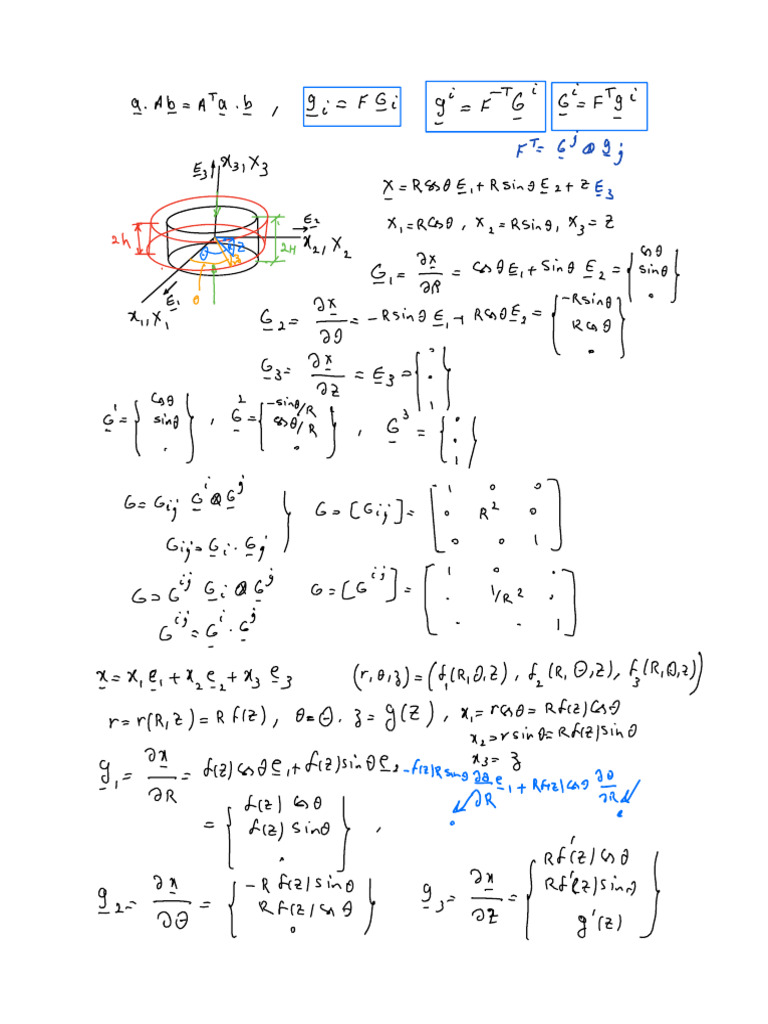 a . A b = Aᵀ a . b , g_i = F G_i g^i = F^{-T} G^i G^i = F^T g^i
F^T = G^j ⊗ g_j
E_3 x_3, X_3
X = R cosθ E_1 + R sinθ E_2 + Z E_3
X_1 = R cosθ , X_2 = R sinθ , X_3 = Z
E_2
x_2, X_2
2h
2H
θ
Z
E_1
θ
x_1, X_1
G_1 = ∂X/∂R = cosθ E_1 + sinθ E_2 = { cosθ sinθ 0 }
G_2 = ∂X/∂θ = -R sinθ E_1 + R cosθ E_2 = { -R sinθ R cosθ 0 }
G_3 = ∂X/∂Z = E_3 = { 0 0 1 }
G^1 = { cosθ sinθ 0 } , G^2 = { -sinθ/R cosθ/R 0 } , G^3 = { 0 0 1 }
G = G_ij G^i ⊗ G^j
G_ij = G_i . G_j
G = [G_ij] = [ 1 0 0 0 R² 0 0 0 1 ]
G = G^ij G_i ⊗ G_j
G^ij = G^i . G^j
G = [G^ij] = [ 1 0 . . 1/R² . . . 1 ]
x = x_1 e_1 + x_2 e_2 + x_3 e_3 (r, θ, z) = (f_1(R, Θ, Z), f_2(R, Θ, Z), f_3(R, Θ, Z))
r = r(R, Z) = R f(Z) , θ = Θ . z = g(Z) , x_1 = r cosθ = R f(Z) cosθ
x_2 = r sinθ = R f(Z) sinθ
x_3 = z
g_1 = ∂x/∂R = f(Z) cosθ e_1 + f(Z) sinθ e_2 - f(Z) R sinθ ∂θ/∂R e_1 + R f(Z) cosθ ∂θ/∂R e
= { f(Z) cosθ f(Z) sinθ . } ,
g_2 = ∂x/∂Θ = { -R f(Z) sinθ R f(Z) cosθ 0 } g_3 = ∂x/∂Z = { R f'(Z) cosθ R f'(Z) sinθ g'(Z) }